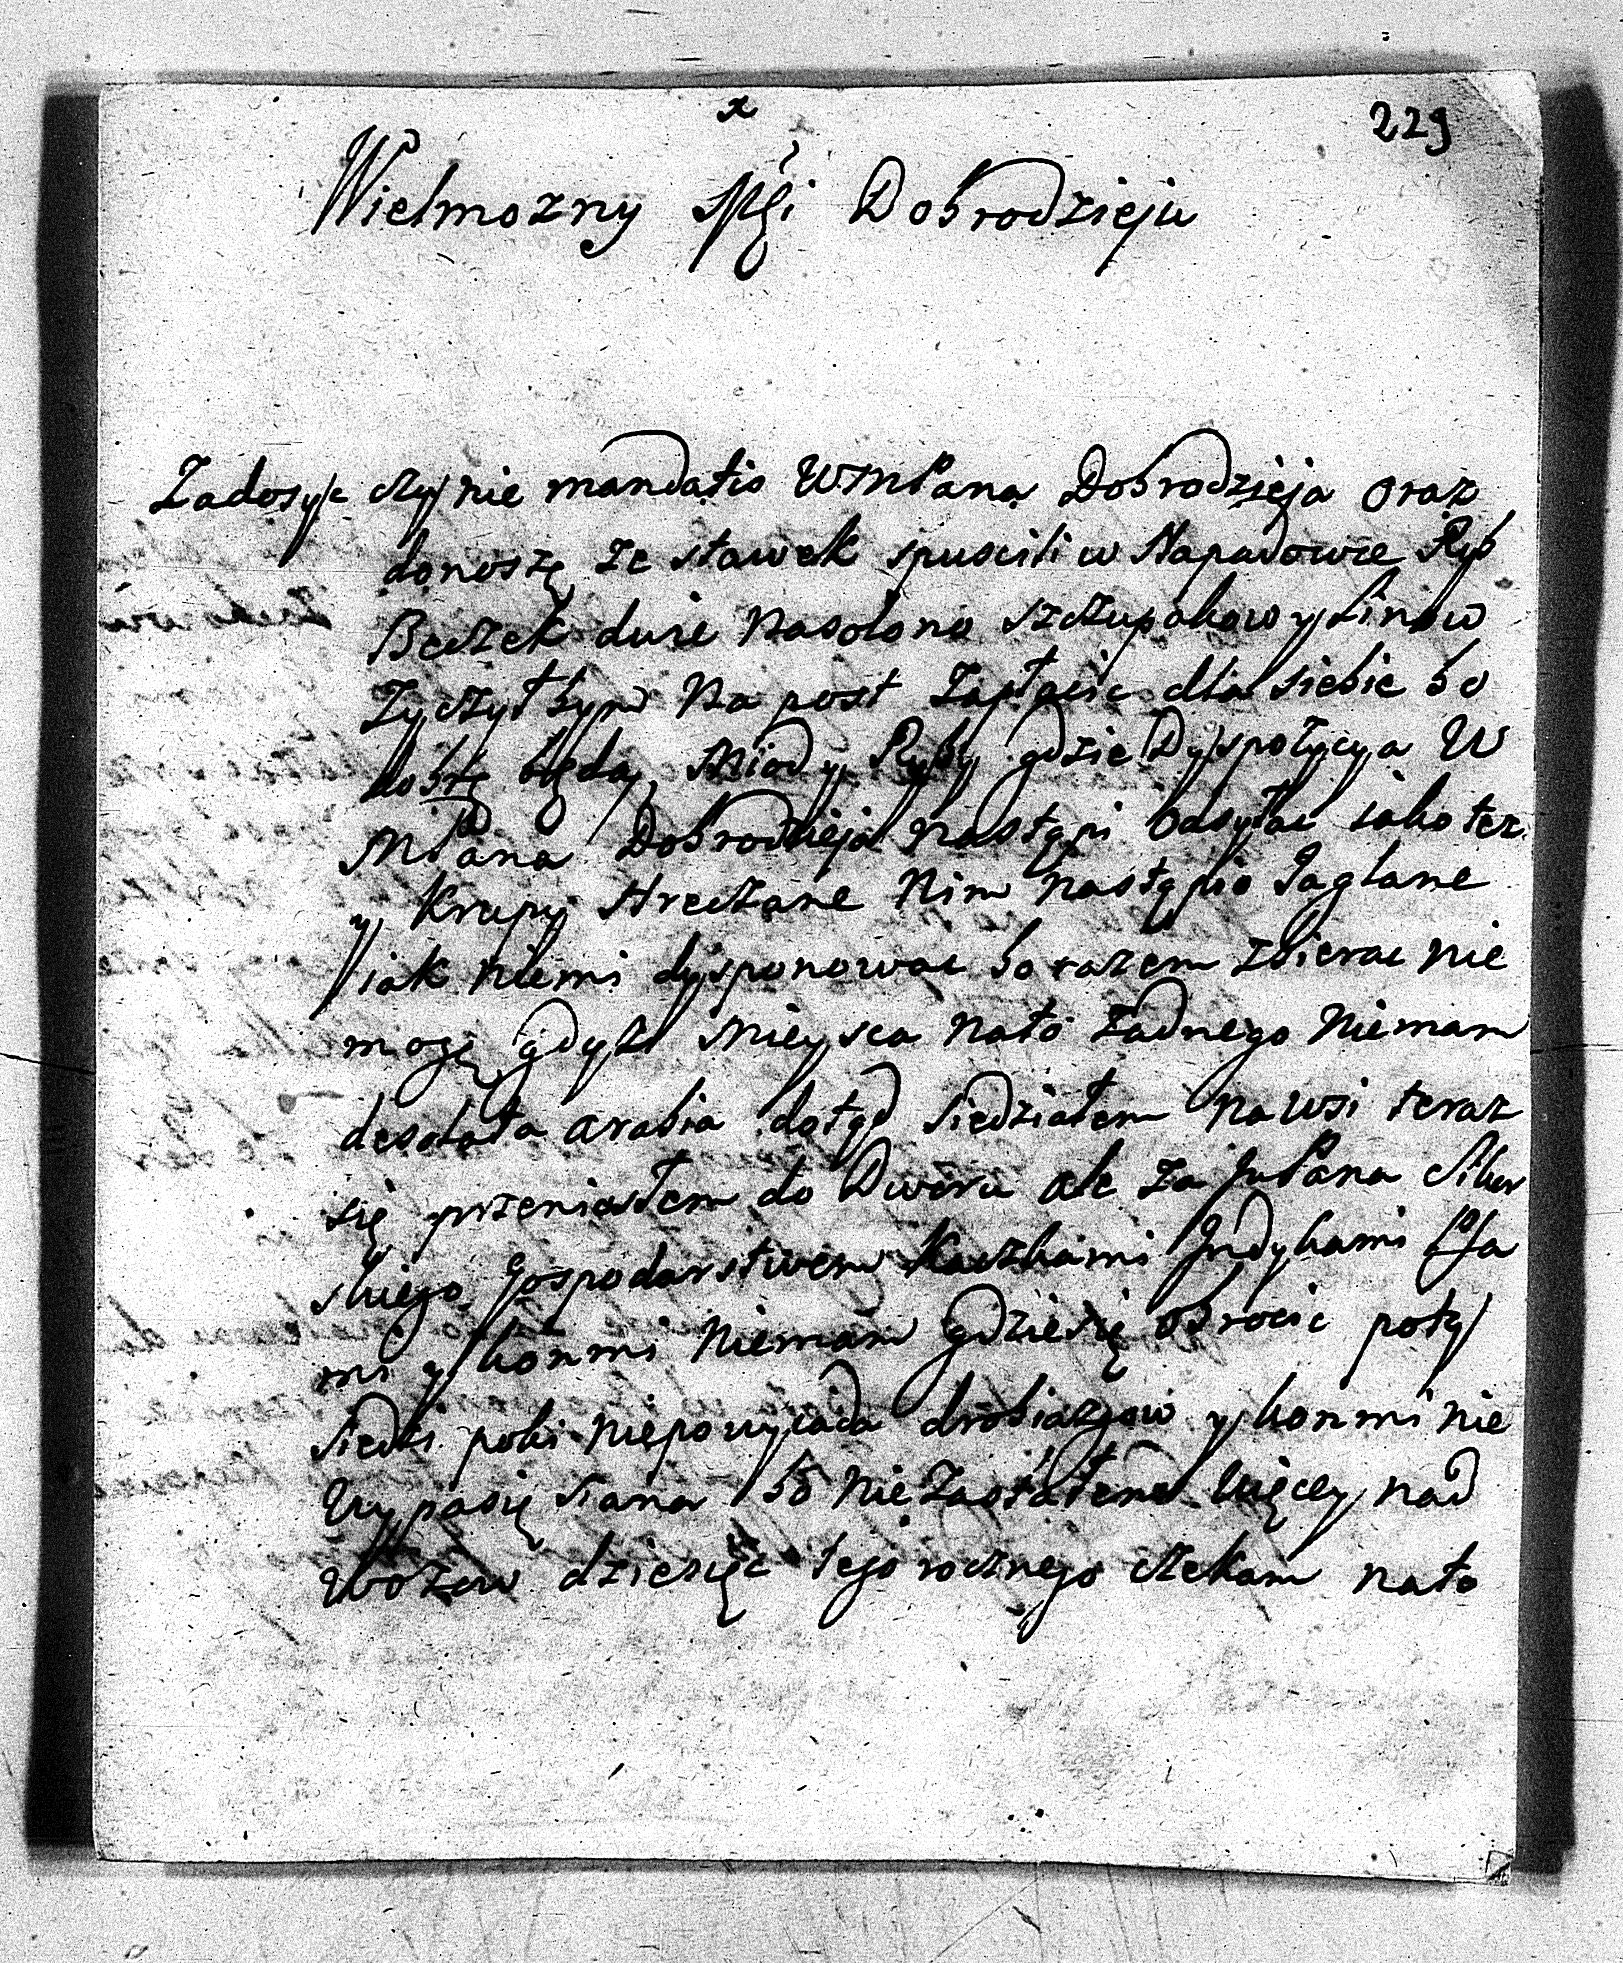 x
229
Wielmozny Mći Dobrodzieju
Zadosyc czynie mandatis WMPana Dobrodzieja oraz
donoszę ze stawek spuscili w Napadowce Ryb
Beczek dwie nasolono szczupakow y Linow
Zyczył bym na post Zapłacic dla siebie bo
będą Miody Ryby gdzie Dyspozycya W
MPana Dobrodzieja nastąpi odsyłac iako tez
y Krupy Hreczane Nim nastąpio Jaglane
iak niemi dysponowac bo razem zbierac nie
mogę gdysz Mieysca nato Zadnego Niemam
desolata arabia dotąd siedziałem nawsi teraz
się przeniosłem do Dworu ale za JmPana
skiego Gospodarstwem Kaczkami Jndykami
mi y konmi Niemam gdziesię obrocic poty
Siedzi poki niepowyiada drobiazgow y konmi nie
Wypasię siana bo nie Zastałem więcey nad
Wozow dziesięc tego rocznego czekam nato